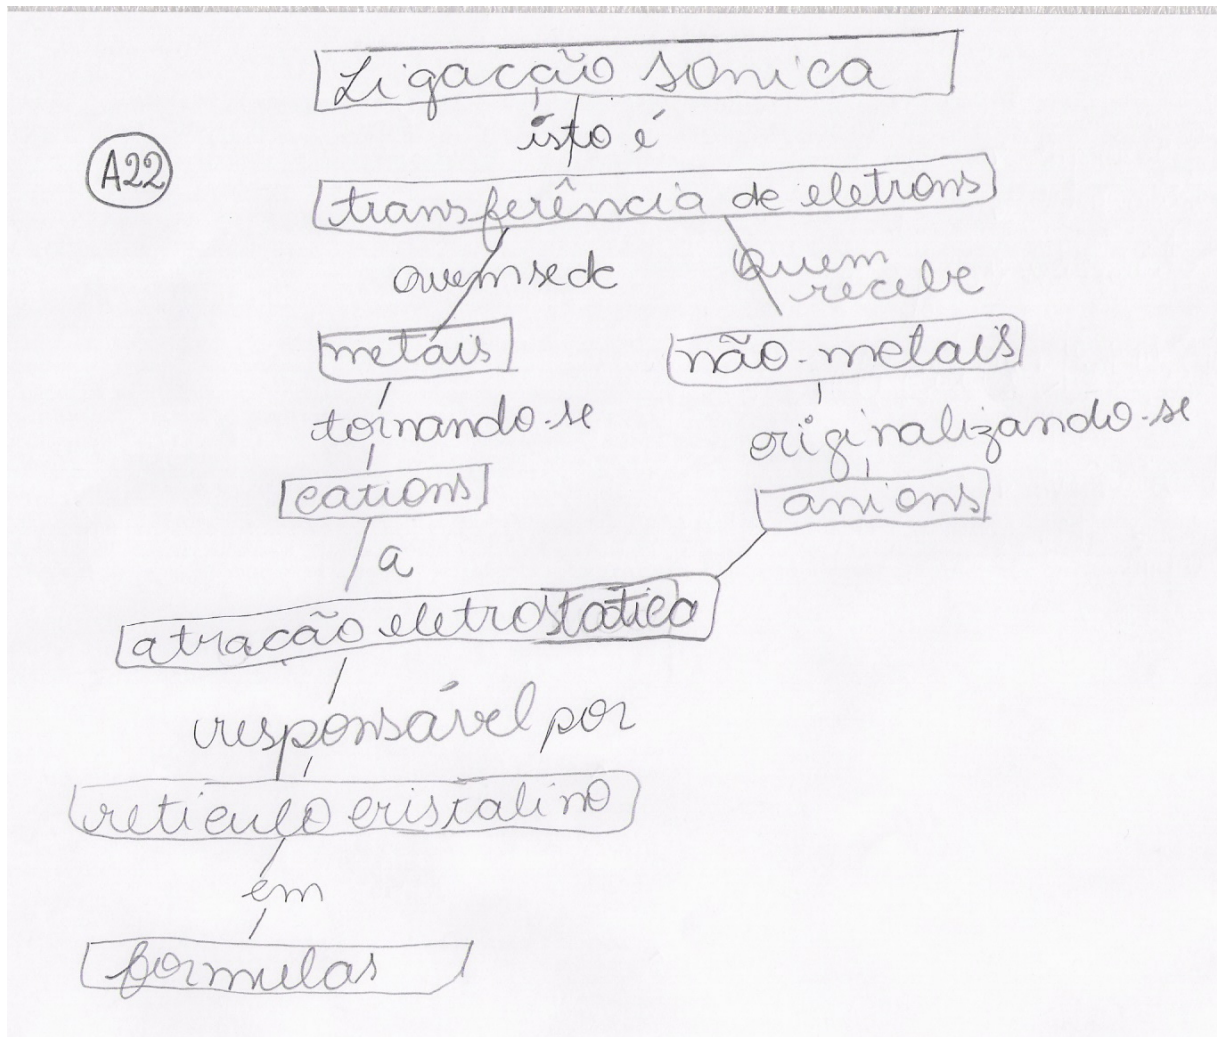 Ligacção sonica
isto é
A22
transferência de eletrons
quem sede
Quem
recebe
metais
não-metais
tornando-se
originalizando-se
cations
anions
a
atração eletrostatica
responsável por
reticulo cristalino
em
formulas